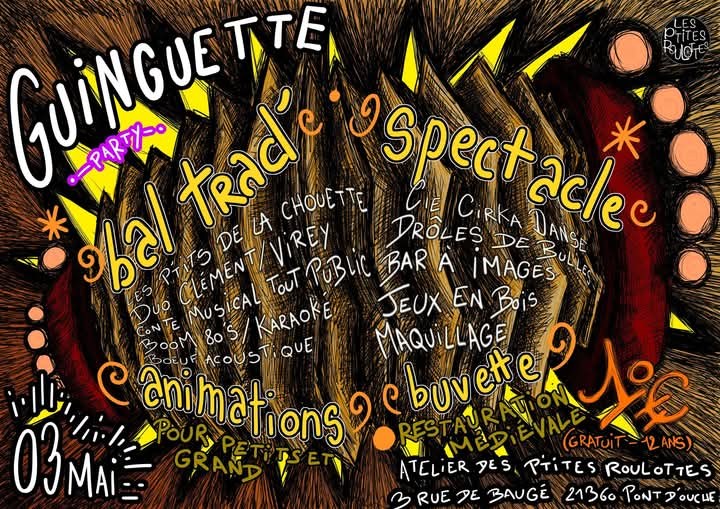 LES
P'TITES
ROULOTTES
GUINGUETTE
PARTY
bal trad'
spectacle
LES P'TITS DE LA CHOUETTE
DUO CLEMENT/VIREY
CONTE MUSICAL TOUT PUBLIC
BOOM 80'S/KARAOKE
BOEUF ACOUSTIQUE
CIE CIRKA DANSE
DRÔLES DE BULLES
BAR A IMAGES
JEUX EN BOIS
MAQUILLAGE
animations
POUR PETITS ET
GRAND
buvette
RESTAURATION
MÉDIÉVALE
10€
(GRATUIT - 12 ANS)
03 MAI
ATELIER DES P'TITES ROULOTTES
3 RUE DE BAUGÉ 21360 PONT D'OUCHE